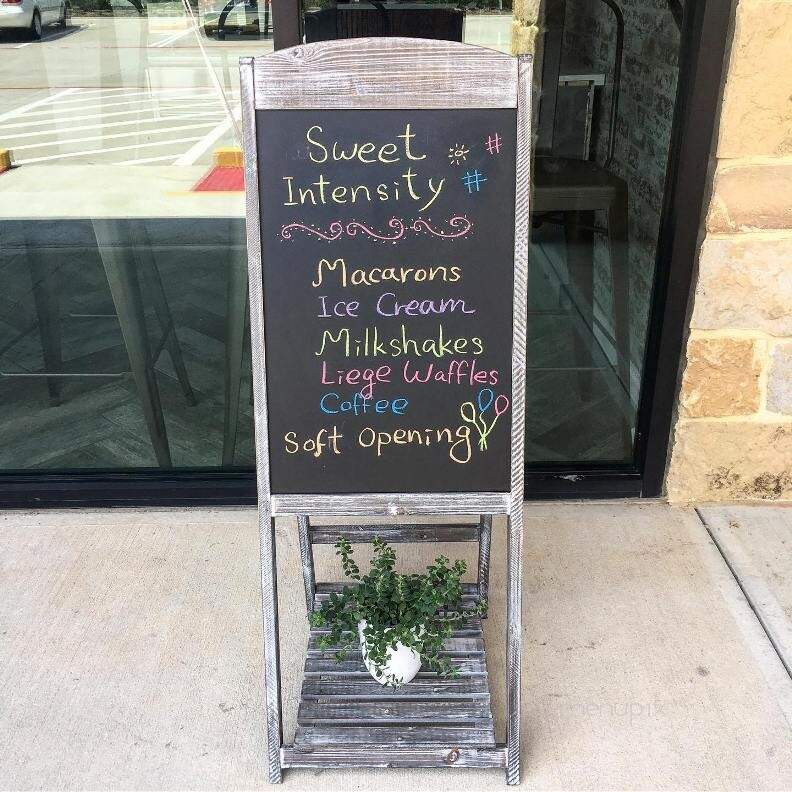 Sweet #
Intensity #
Macarons
Ice Cream
Milkshakes
Liege Waffles
Coffee
Soft Opening
menupix